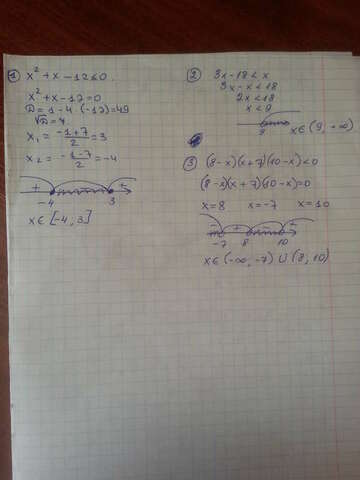 1 x² + x - 12 ≤ 0.
x² + x - 12 = 0
D = 1 - 4 · (-12) = 49
√D = 7
x₁ = (-1+7)/2 = 3
x₂ = (-1-7)/2 = -4
+ - +
-4 3
x ∈ [-4, 3]
2 3x - 18 < x
3x - x < 18
2x < 18
x < 9
9
x ∈ (9, +∞)
3 (8-x)(x+7)(10-x) < 0
(8-x)(x+7)(10-x) = 0
x = 8 x = -7 x = 10
- + - +
-7 8 10
x ∈ (-∞, -7) ∪ (8, 10)